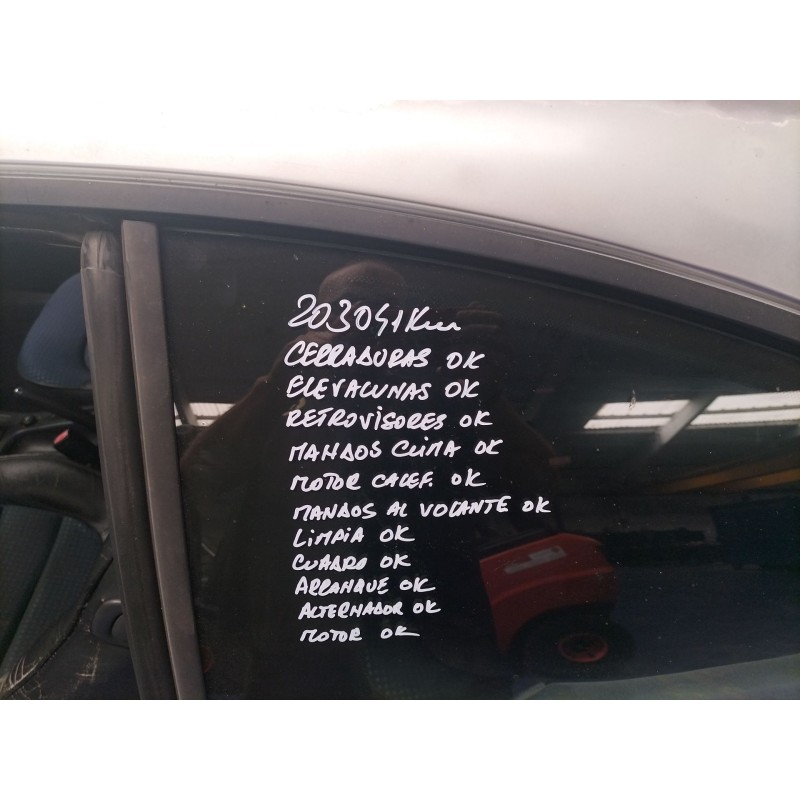 203041Km
CERRADURAS OK
ELEVALUNAS OK
RETROVISORES OK
MANDOS CLIMA OK
MOTOR CALEF. OK
MANDOS AL VOLANTE OK
LIMPIA OK
CUADRO OK
ARRANQUE OK
ALTERNADOR OK
MOTOR OK